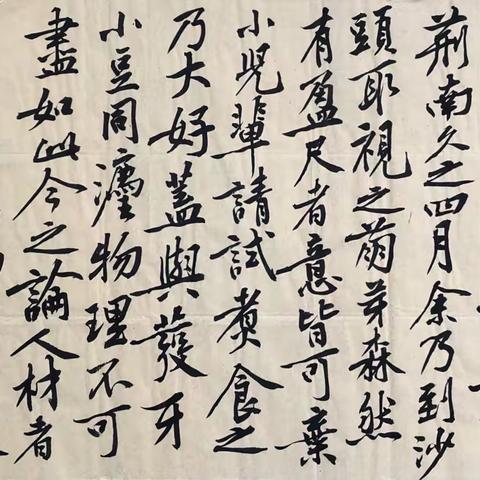 荊南久之四月余乃到沙
頭取視之萌芽森然
有盈尺者意皆可棄
小兒輩請試煑食之
乃大好蓋與發牙
小豆同灋物理不可
盡如此今之論人材者